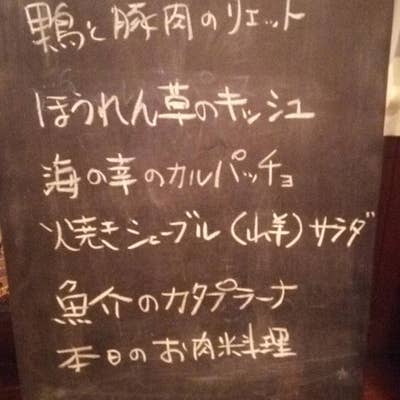 鴨と豚肉のリエット
ほうれん草のキッシュ
海の幸のカルパッチョ
焼きシェーブル(山羊)サラダ
魚介のカタプラーナ
本日のお肉料理